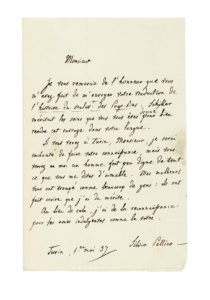 Monsieur
Je vous remercie de l'honneur que vous
m'avez fait de m'envoyer votre traduction de
l'histoire du soulèv.t des Pays Bas. Schiller
méritait les soins que vous vous êtes donné pour bien
rendre cet ouvrage dans votre langue.
Si vous venez à Turin, Monsieur, je serai
enchanté de faire votre connaissance mais vous
verrez en moi un homme fort peu digne de tout
ce que vous me dites d'aimable. Mes malheurs
vous ont trompé comme beaucoup de gens : ils ont
fait croire que j'ai du mérite.
Au lieu de cela, j'ai de la reconnaissance
pour les âmes indulgentes comme la vôtre.
Turin, 1er mai 37 Silvio Pellico